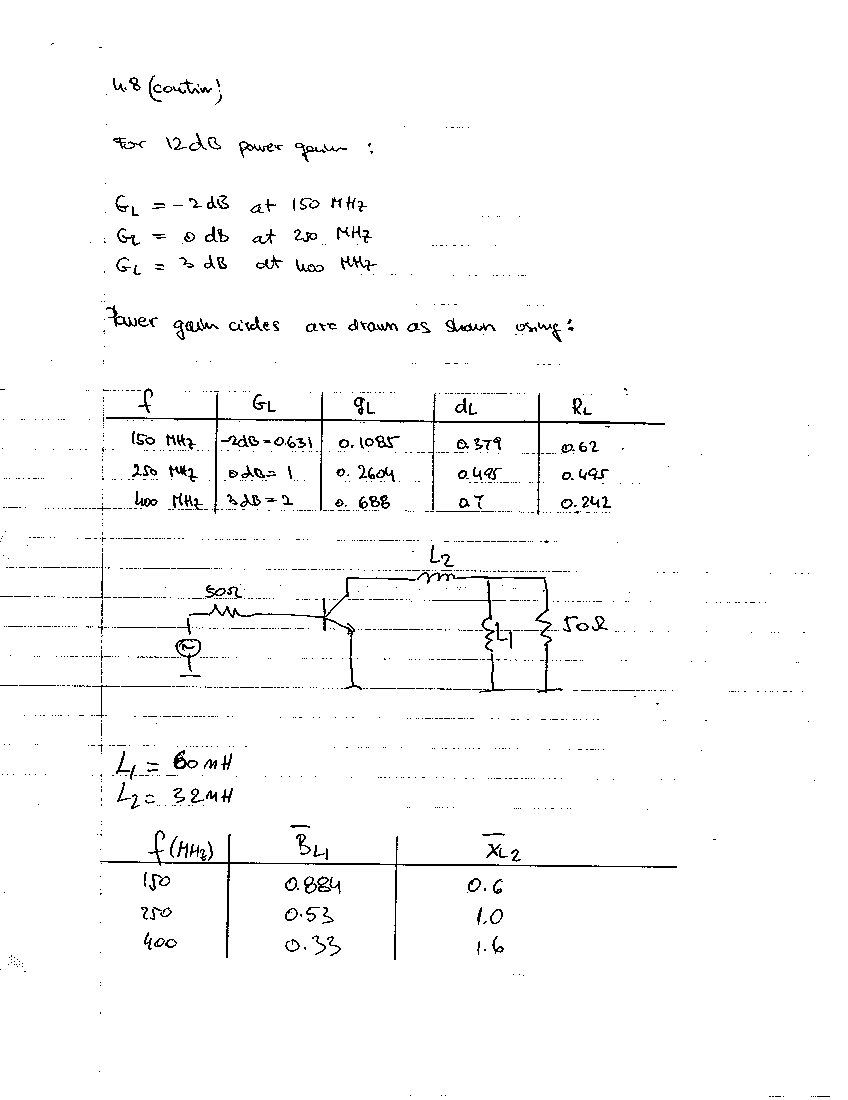 4.8 (contin)
For 12dB power gain :
GL = -2dB at 150 MHz
GL = 0 db at 250 MHz
GL = 3 dB at 400 MHz
Power gain circles are drawn as shown using :
f GL gL dL RL
150 MHz -2dB=0.631 0.1085 0.379 0.62
250 MHz 0dB=1 0.2604 0.495 0.495
400 MHz 3dB=2 0.688 0.7 0.242
L2
50Ω
L1 50Ω
L1 = 60nH
L2 = 32nH
f(MHz) B̅L1 X̅L2
150 0.884 0.6
250 0.53 1.0
400 0.33 1.6